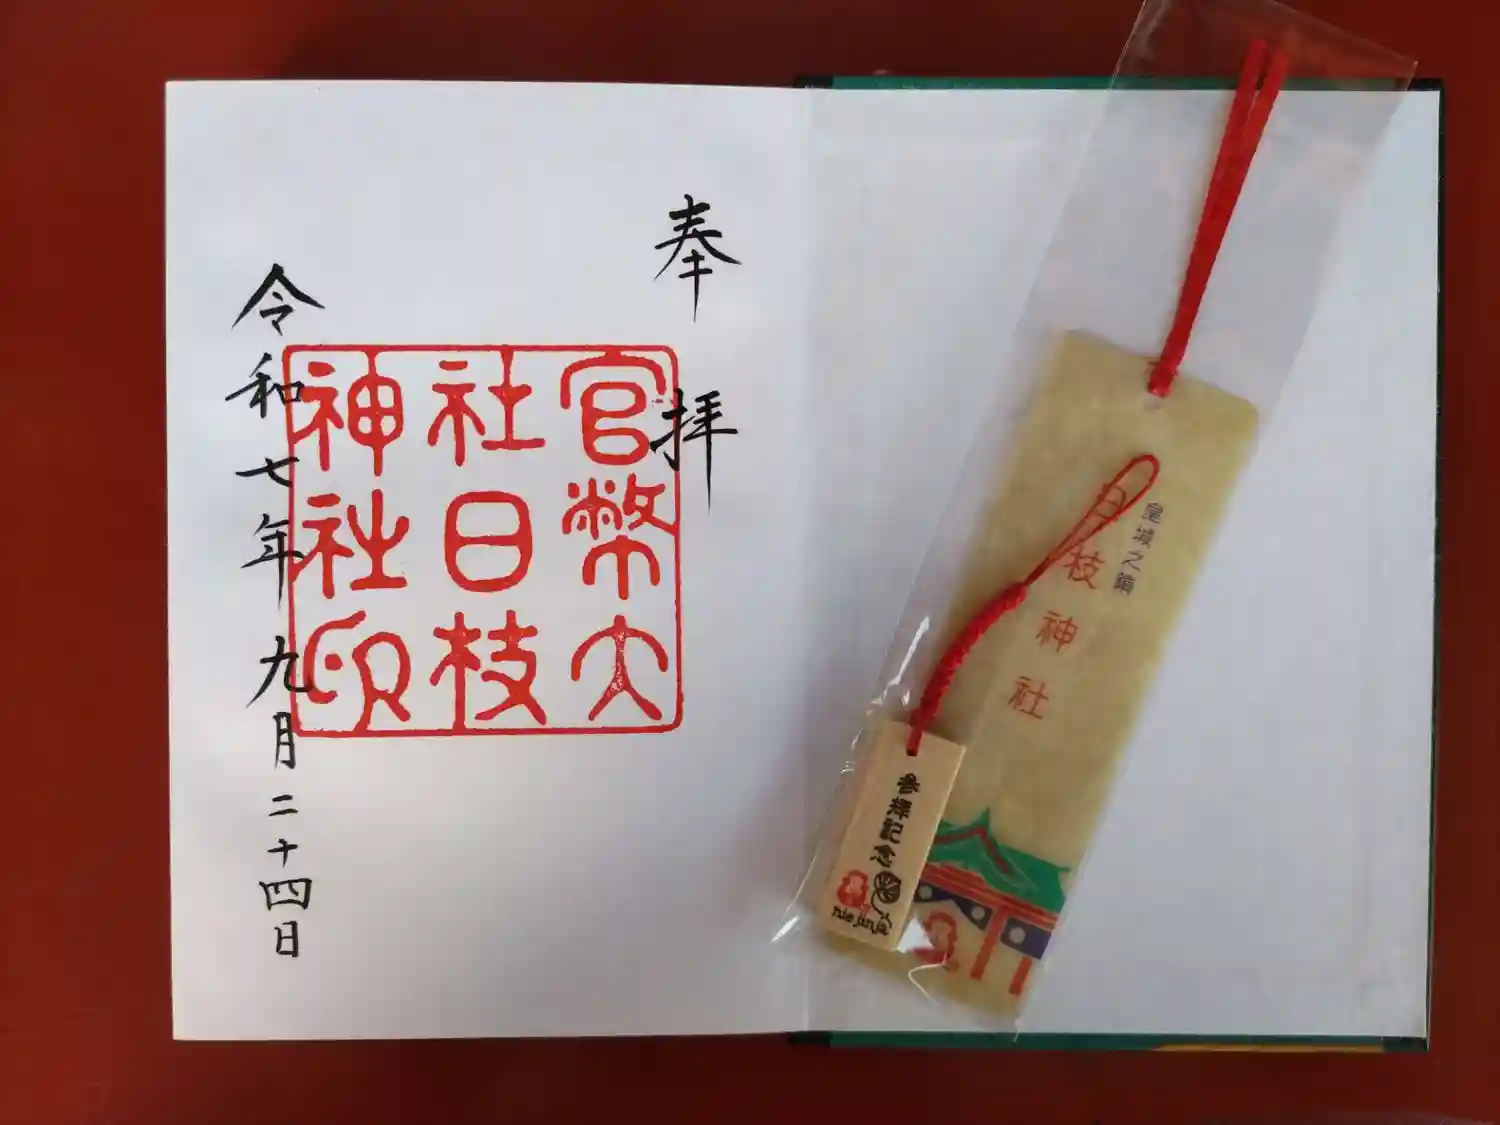 奉拝
官幣大
社日枝
神社印
令和七年九月二十四日
皇城之鎮
日枝神社
参拝記念